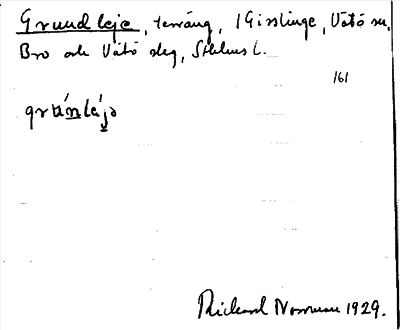 Grundleje, terräng, i Gisslinge, Vätö sn,
Bro och Vätö slg, Sthlms l.
161
grúnléjə
Rickard Norrman 1929.